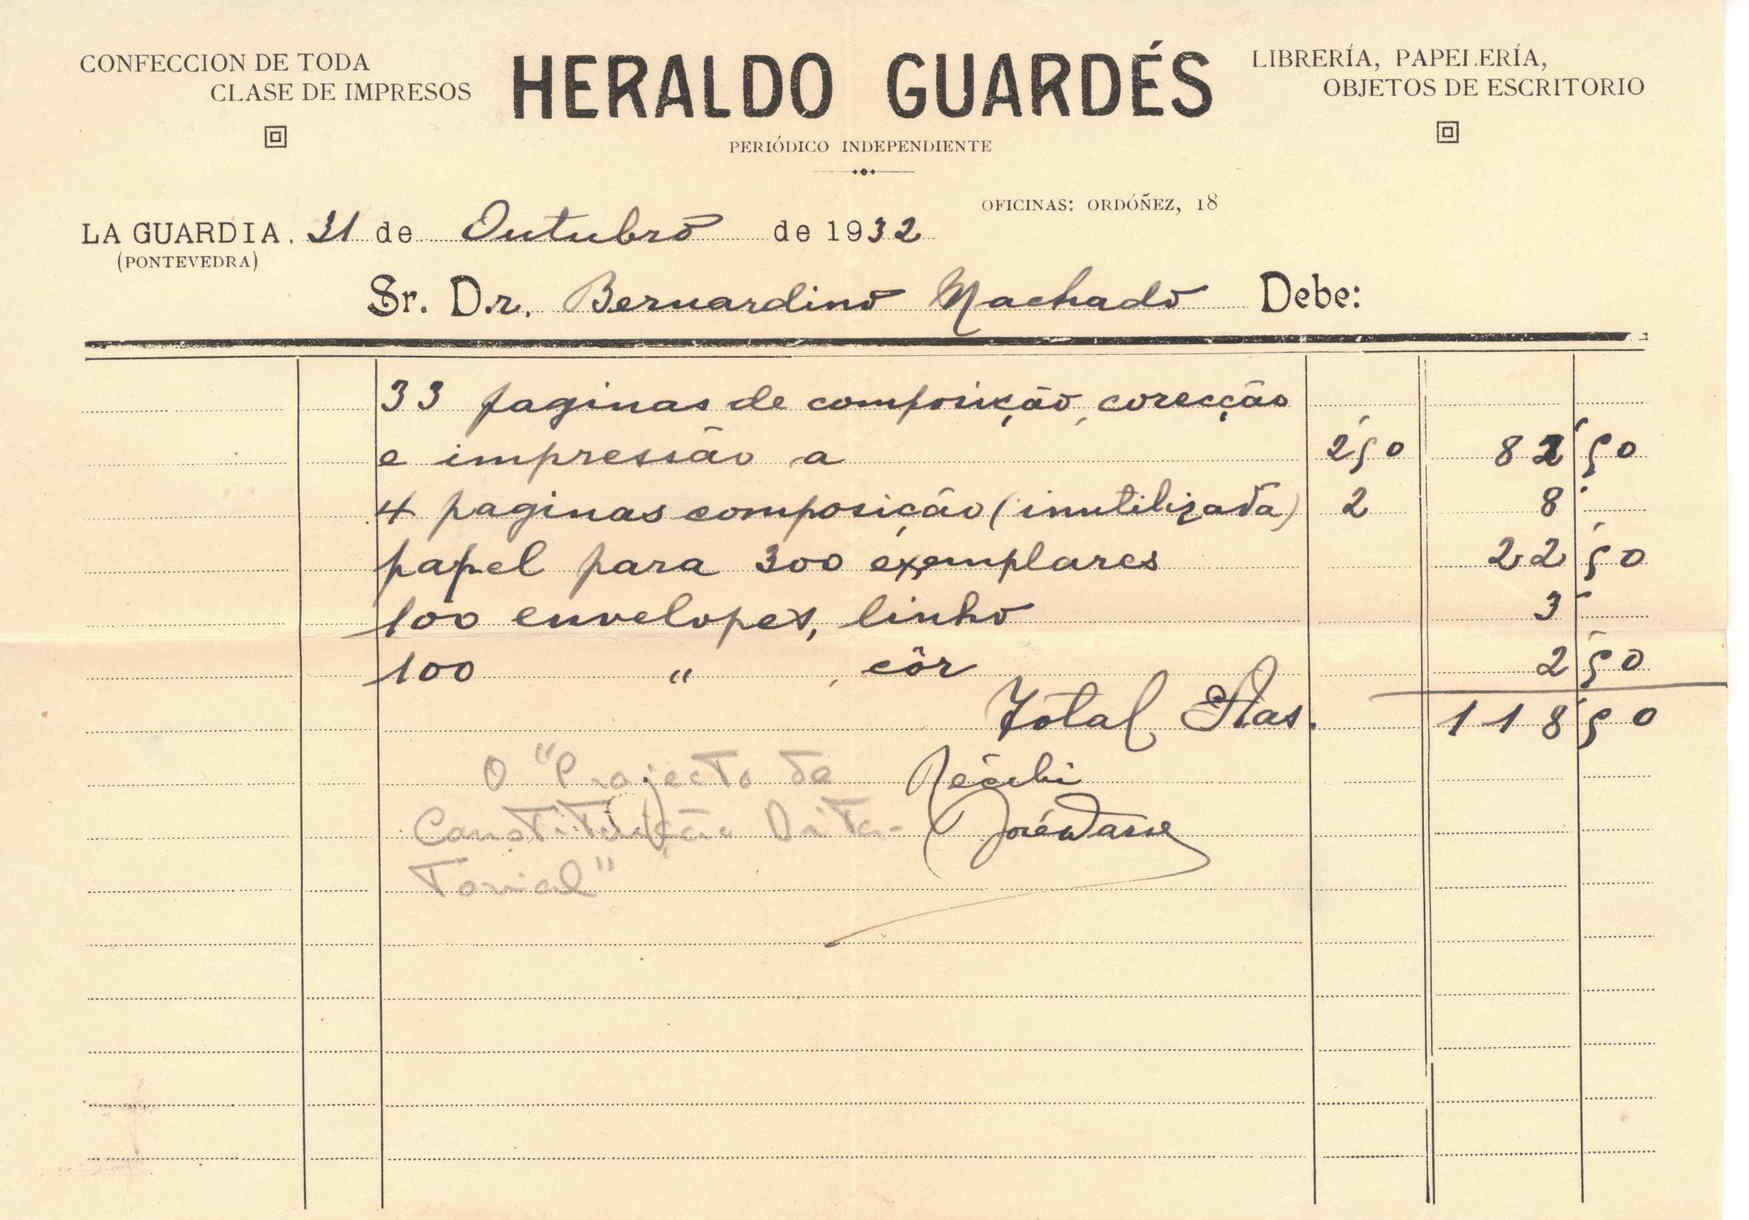 CONFECCION DE TODA
CLASE DE IMPRESOS
HERALDO GUARDÉS
PERIÓDICO INDEPENDIENTE
LIBRERÍA, PAPELERÍA,
OBJETOS DE ESCRITORIO
OFICINAS: ORDÓÑEZ, 18
LA GUARDIA. 31 de Outubro de 1932
(PONTEVEDRA)
Sr. Dr. Bernardino Machado Debe:
33 paginas de composição, corecção
e impressão a 2'50 82'50
4 paginas composição (inutilizada) 2 8'
papel para 300 exemplares 22'50
100 envelopes, linho 3'
100 " , côr 2'50
Total Ptas. 118'50
O "Projecto de
Constituição Dita-
torial"
Recibi
José